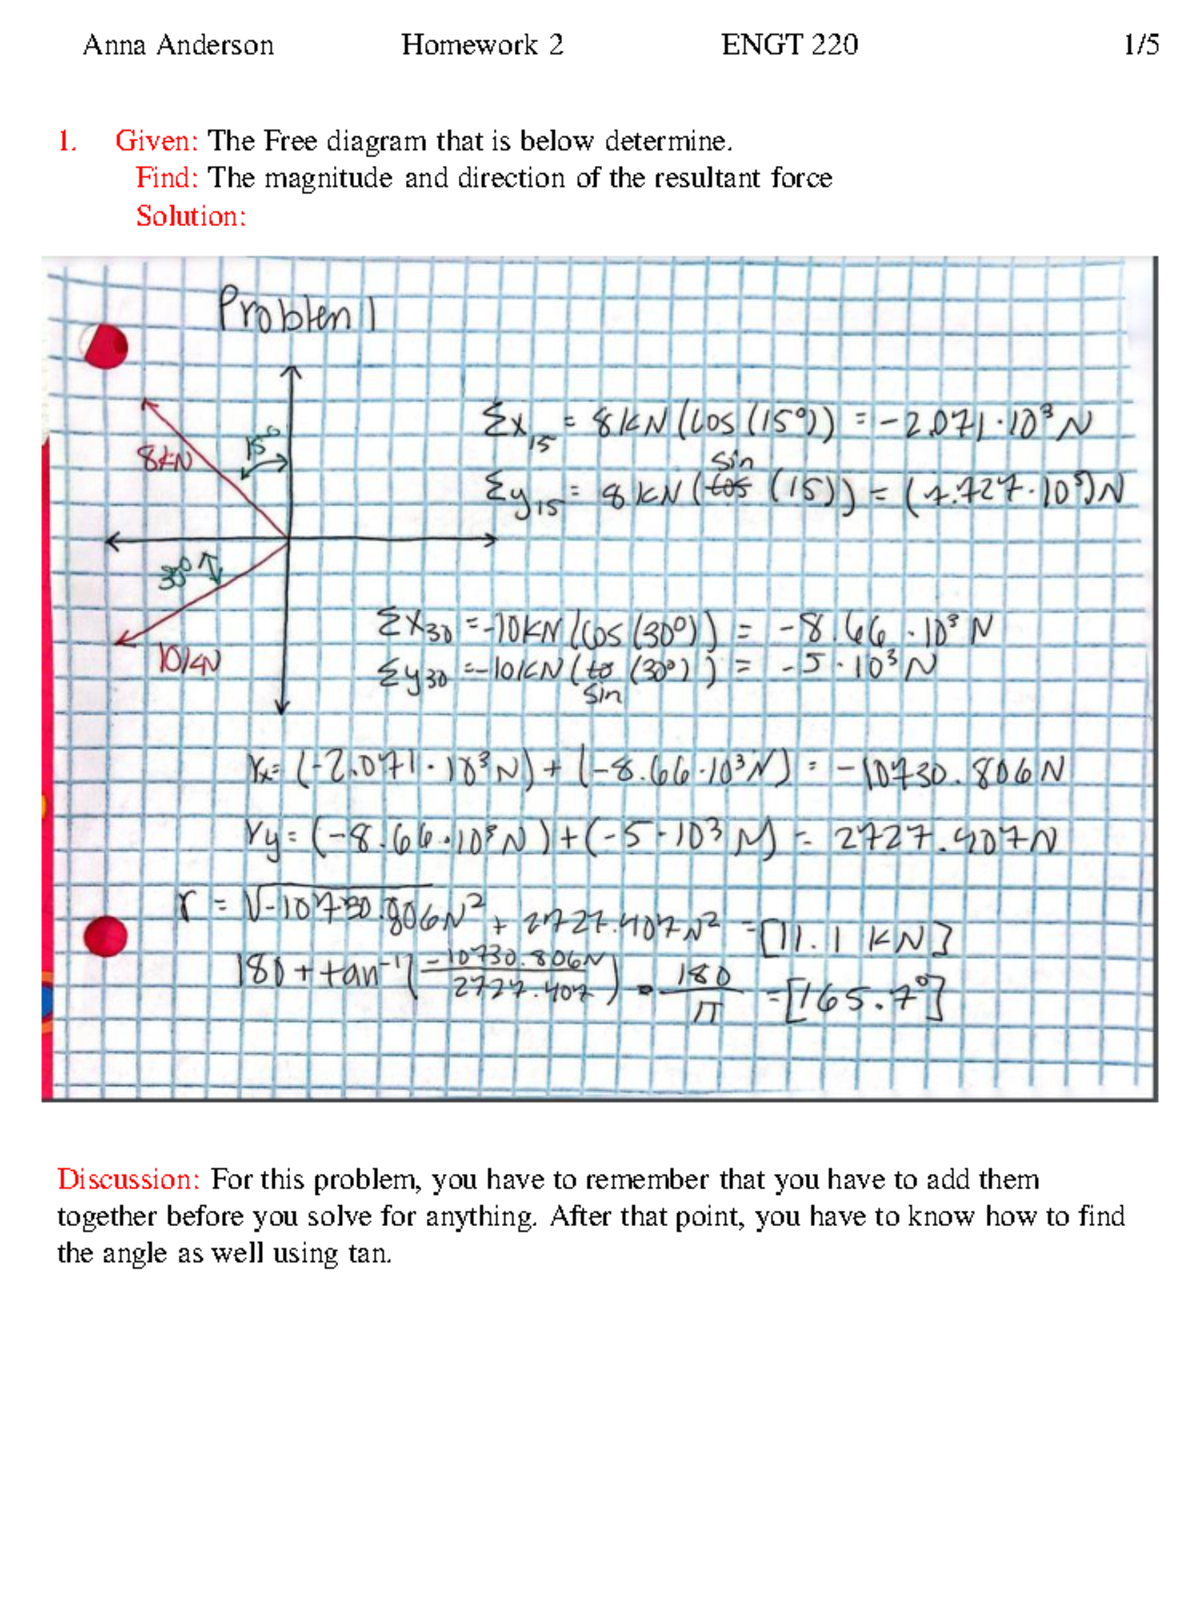 Anna Anderson Homework 2 ENGT 220 1/5
1. Given: The Free diagram that is below determine.
Find: The magnitude and direction of the resultant force
Solution:
Problem 1
8kN
15°
30°
10kN
Σx15 = 8kN (cos (15°)) = -2.071·10³ N
sin
Σy15 = 8kN (cos (15)) = (7.727·10³)N
Σx30 = -10kN (cos (30°)) = -8.66·10³ N
Σy30 = -10kN (to (30°)) = -5·10³ N
sin
rx = (-2.071·10³N) + (-8.66·10³N) = -10730.806N
ry = (-8.66·10³N) + (-5·10³N) = 2727.407N
r = √-10730.806N² + 2727.407N² = [11.1 kN]
180 + tan⁻¹(-10730.806N / 2727.407) · 180/π = [165.7°]
Discussion: For this problem, you have to remember that you have to add them
together before you solve for anything. After that point, you have to know how to find
the angle as well using tan.